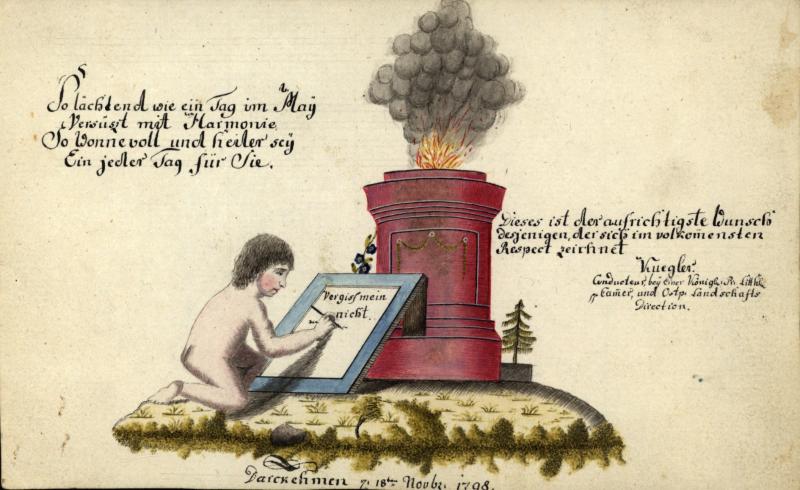 So lächtend wie ein Tag im May
Versüsst mit Harmonie,
So Wonnevoll und heiter sey
Ein jeder Tag für Sie.
Dieses ist der aufrichtigste Wunsch
desjenigen, der sich im volkomensten
Respect zeichnet
Kuegler.
Conducteur, bey einer Königl. Pr. Litth.
Camer, und Ostp. Landschafts
Direction.
Vergiss mein
nicht.
Darckehmen d. 18ten Novbr. 1798.